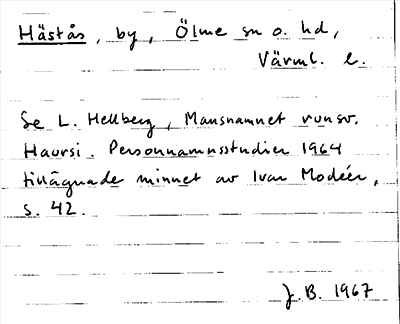 Hästås, by, Ölme sn o. hd,
Värml. l.
Se L. Hellberg, Mansnamnet runsv.
Haursi. Personnamnsstudier 1964
tillägnade minnet av Ivar Modéer,
s. 42.
J.B. 1967